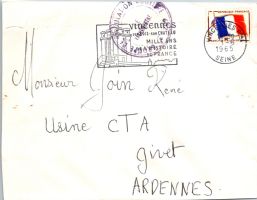 VINCENNES
MILLE ANS
D'HISTOIRE
DE FRANCE
1965
SEINE
Monsieur Join René
Usine CTA
givet
ARDENNES.